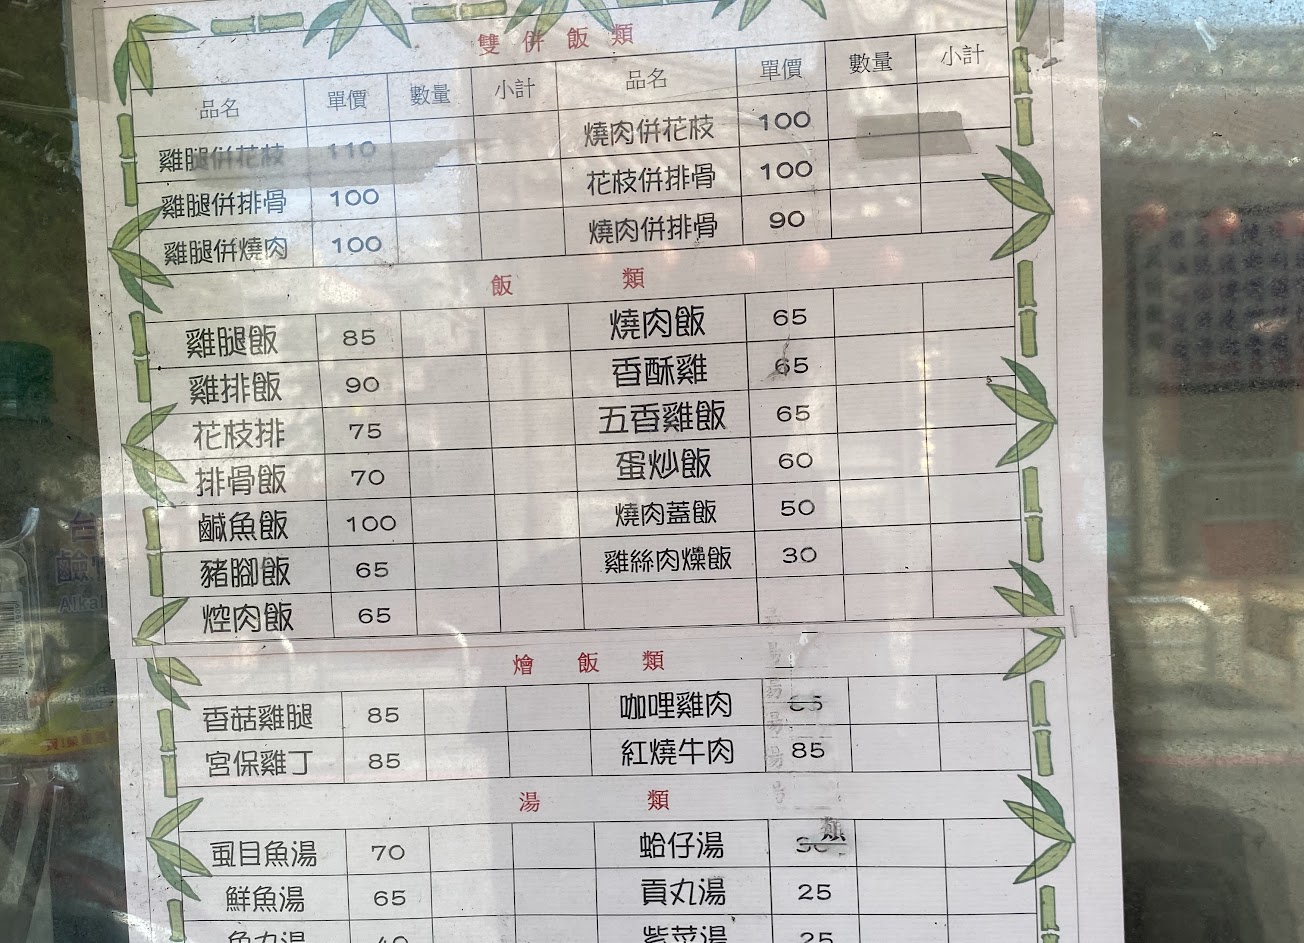 雙併飯類
品名 單價 數量 小計 品名 單價 數量 小計
雞腿併花枝 110 燒肉併花枝 100
雞腿併排骨 100 花枝併排骨 100
雞腿併燒肉 100 燒肉併排骨 90
飯類
雞腿飯 85 燒肉飯 65
雞排飯 90 香酥雞 65
花枝排 75 五香雞飯 65
排骨飯 70 蛋炒飯 60
鹹魚飯 100 燒肉蓋飯 50
豬腳飯 65 雞絲肉燥飯 30
焢肉飯 65
燴飯類
香菇雞腿 85 咖哩雞肉
宮保雞丁 85 紅燒牛肉 85
湯類
虱目魚湯 70 蛤仔湯
鮮魚湯 65 貢丸湯 25
魚丸湯 40 紫菜湯 25